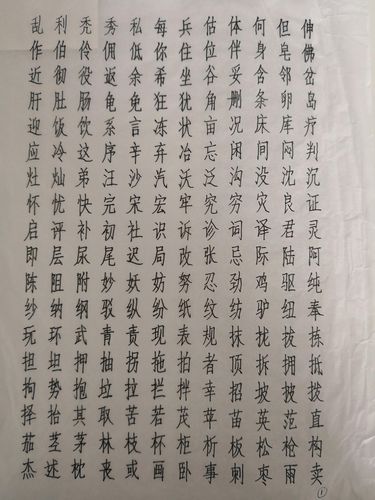 乱利秃秀私每兵估体何但伸
作伯伶佣低你住位伴身皂佛
近彻役返余希坐谷妥含邻岔
肝肚肠龟免狂犹角删条卵岛
迎饭饮系言冻状亩况床库疗
应冷这序辛弃冶忘闲间闷判
灶灿弟汪沙汽沃泛沟没沈沉
怀忧快完宋宏牢究穷灾良证
启评补初社识诉诊词译君灵
即层尿尾迟局改张忌际陆阿
陈阻附妙妖妨努忍劲鸡驱纯
纱纳纲驳纵纷纸纹纺驴纽奉
玩环武青责现表规抹拢拔拣
担坦押抽拐拖拍者顶拆拥抵
拘势抱垃拉拦拌幸招坡披拨
择抬其取苦若茂苹苗英范直
茄茎茅林枝杯柜析板松枪构
杰述枕丧或画卧事刺枣雨卖
①